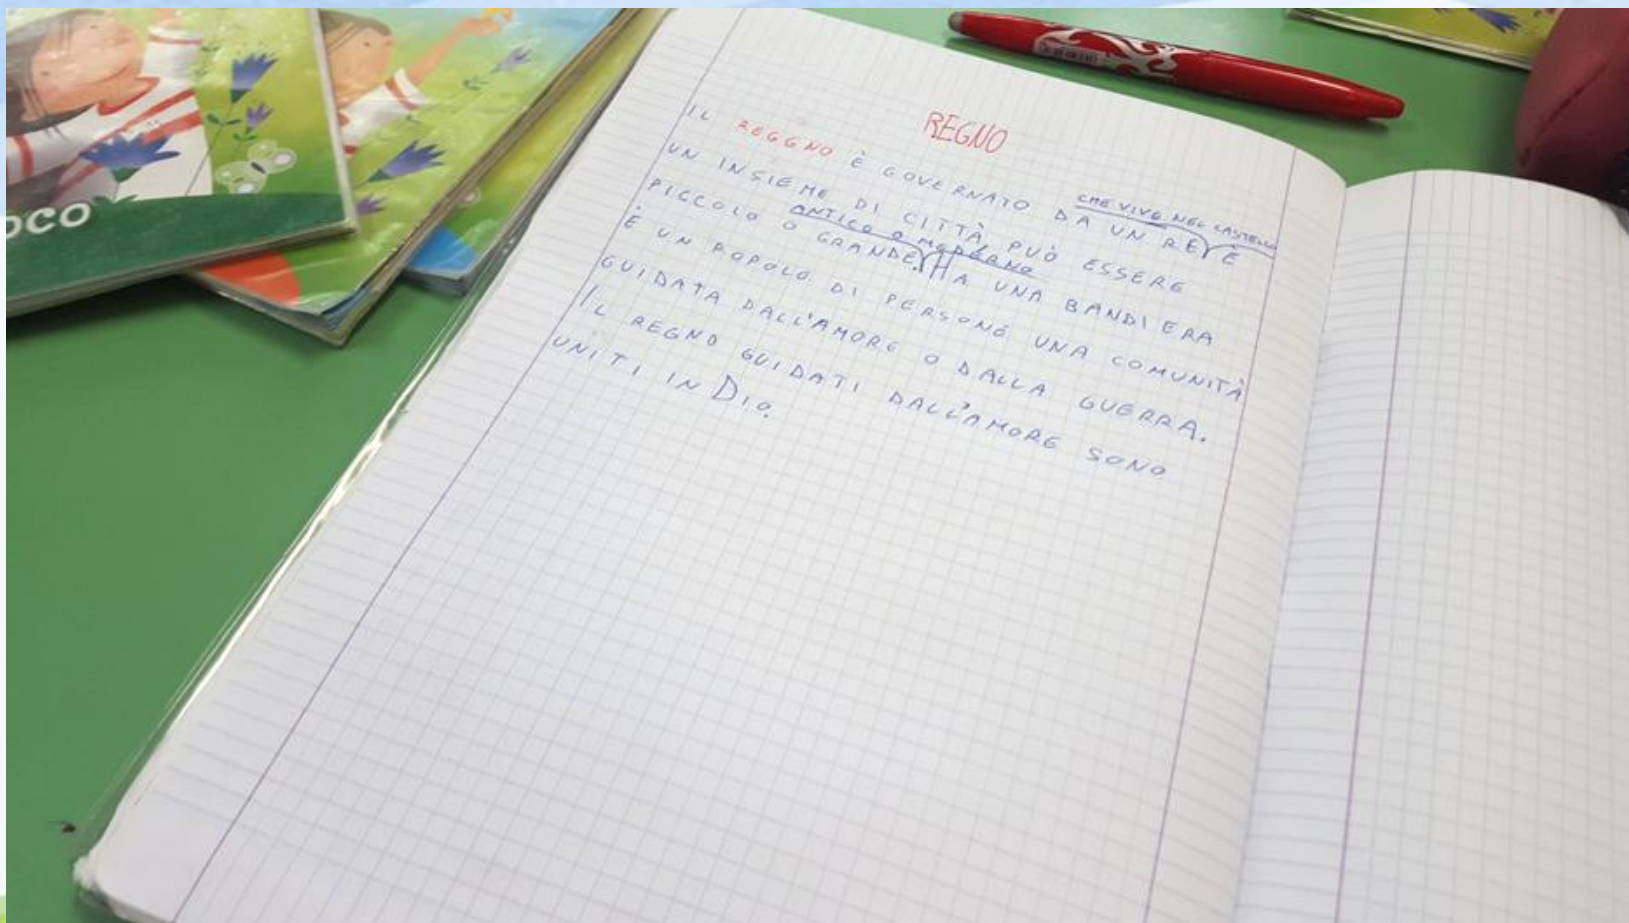 OCO
REGNO
IL REGGNO È GOVERNATO DA UN RE È
CHE VIVE NEL CASTELLO
UN INSIEME DI CITTÀ PUÒ ESSERE
ANTICO O MODERNO
PICCOLO O GRANDE. HA UNA BANDIERA
È UN POPOLO DI PERSONE UNA COMUNITÀ
GUIDATA DALL'AMORE O DALLA GUERRA.
IL REGNO GUIDATI DALL'AMORE SONO
UNITI IN DIO.